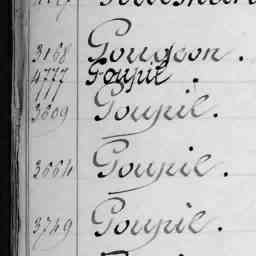 3168 Gougeon.
4777 Goupil.
3609 Goupil.
3664 Goupil.
3749 Goupil.